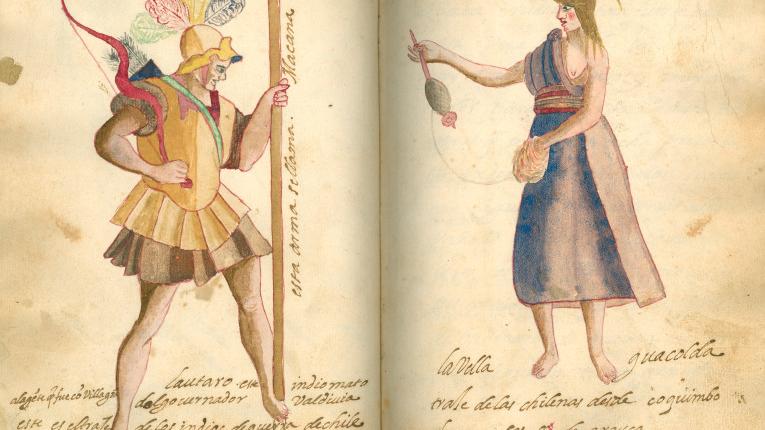 esta arma se llama. Macana
lautaro este indio mato
a la gēte q̄ fue cō Villagrā del gouernador Valdiuia
este es el traje de los indios de guerra de chile
la Vella guacolda
traje de las chilenas desde coquimbo